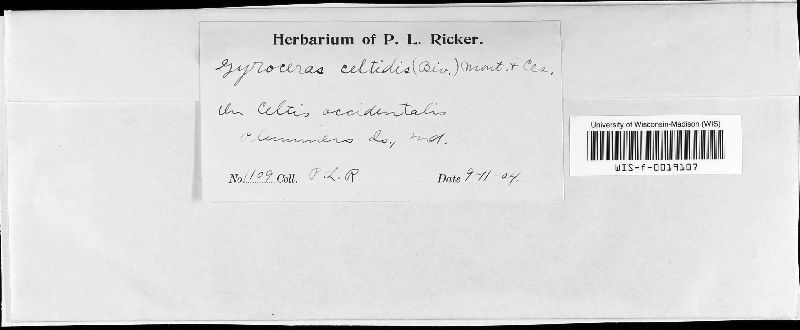 Herbarium of P. L. Ricker.
Gyroceras celtidis (Biv.) Mont. & Ces.
On Celtis occidentalis
Plummers Is, Md.
No. 1109 Coll. P. L. R
Date 9-11-04.
University of Wisconsin-Madison (WIS)
WIS-f-0019107